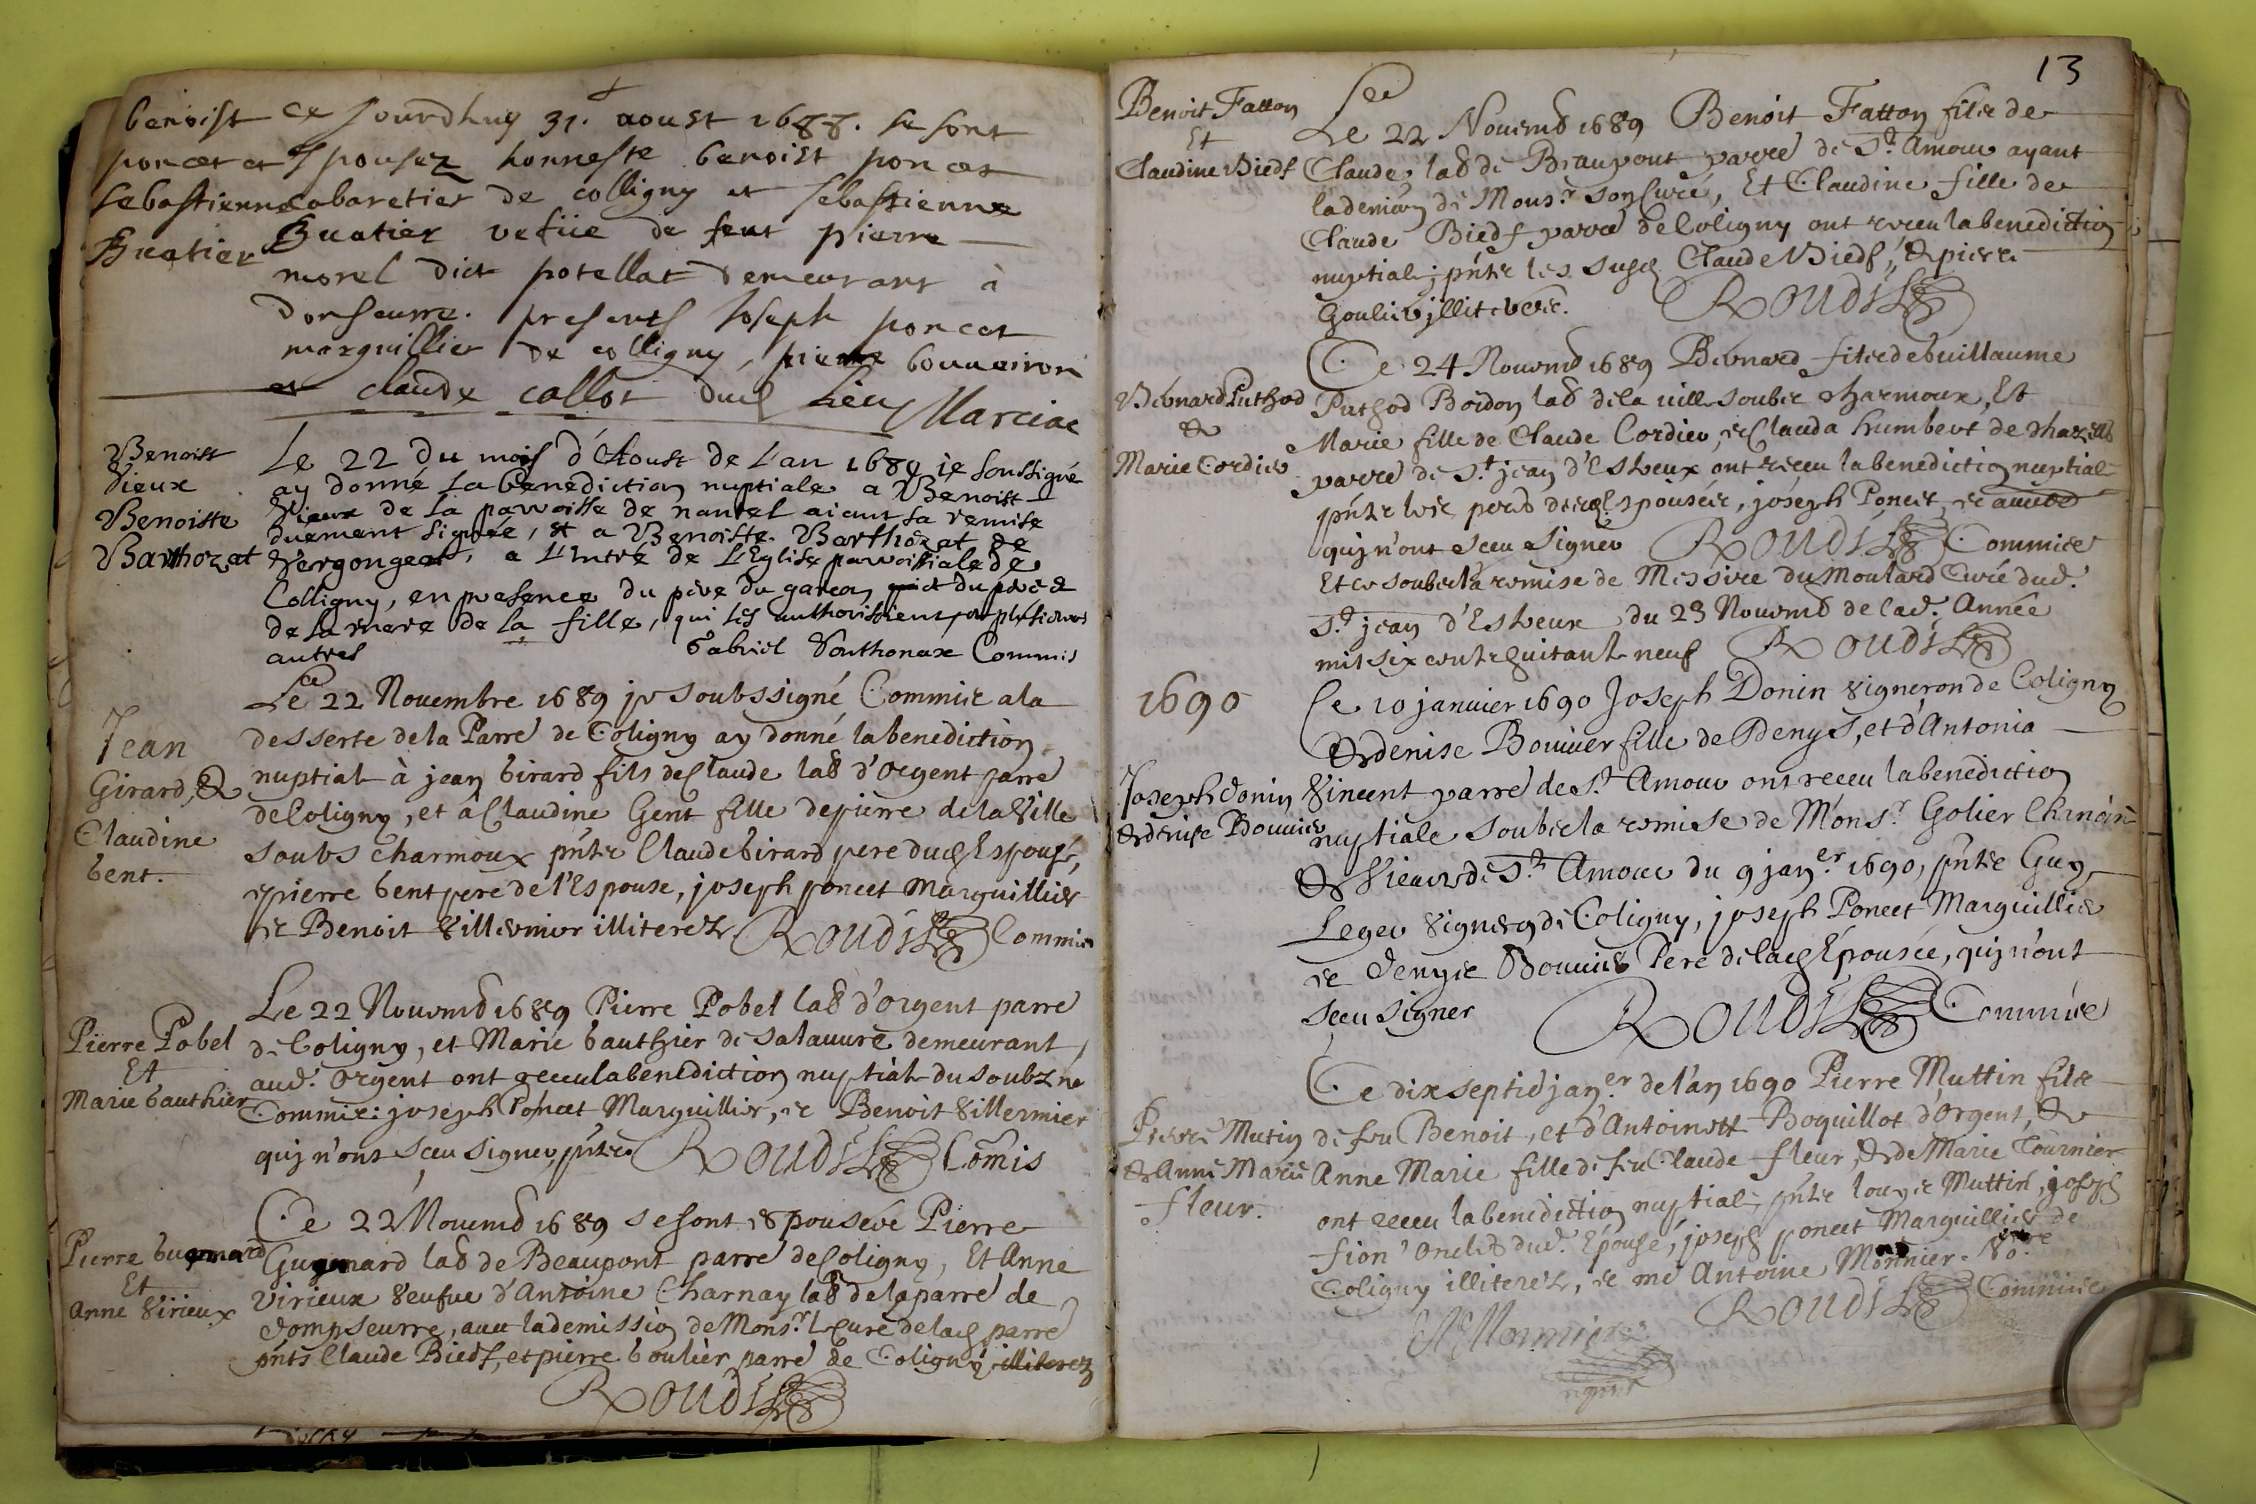 benoist
poncet et
sebastienne
Guatier
ce Jourdhuy 31. aoust 1688. se sont
Epousez honneste benoist poncet
Cabaretier de colligny et sebastienne
Guatier vefue de feut pierre
morel dict potellat demeurant à
Domseurre. presents Joseph poncet
marguillier de colligny, pierre bouveiron
et claude callot dud Lieu Marciac
Benoist
Vieux
Benoiste
Barthozat
Le 22 du mois d'Aoust de L'an 1689 je soussigné
ay donné La benediction nuptiale a Benoist
Vieux de la parroisse de nantel aiant sa remise
duement signée, et a Benoiste Barthozat de
Vergongeat, a L'Entré de L'Eglise parroissiale de
Colligny, en presence du pere du garcon et du pere &
de la mere de la fille, qui les authorissient
autres Gabriel Southonax Commis
Jean
Girard, &
Claudine
Gent.
Le 22 Nouembre 1689 je soubssigné Commis a la
desserte de la Parre de Coligny ay donné la benediction
nuptial à jean Girard fils de Claude lab d'orgent parre
de Coligny, et à Claudine Gent fille de pierre de la Ville
soubs charmoux pnts Claude Girard pere dud Espousé,
pierre Gent pere de l'Espouse, joseph poncet Marguillier
et Benoit Villermier illiterez Roudil Commis
Pierre Pobel
Et
Marie Gauthier
Le 22 Nouemb 1689 Pierre Pobel lab d'orgent parre
de Coligny, et Marie Gauthier de salauure demeurant
aud. orgent ont receu la benediction nuptial du soubzne
Commis: joseph Poncet Marguillier, et Benoit Villermier
quj n'ont sceu signer, pnts Roudil Comis
Pierre Guynard
Et
Anne Virieux
Ce 22 Nouemb 1689 se sont espousés Pierre
Guynard lab de Beaupont parre de Coligny, Et Anne
Virieux Veufue d'Antoine Charnay lab de la parre de
dompseurre, auec la demission de Monsr. le Curé de lad parre
pnts Claude Biedf, et pierre Goulier parre de Coligny illiterez
Roudil
13
Benoit Fatton
Et
Claudine Biedf
Le 22 Nouemb 1689 Benoit Fatton fils de
Claude lab de Beaupont parre de St. Amour ayant
la demion de Monsr. son Curé, Et Claudine fille de
Claude Biedf parre de Coligny ont receu la benediction
nuptial; pnts les susd Claude Biedf, & pierre
Goulier jlliterez. Roudil
Bernard Puthod
&
Marie Cordier
Ce 24 Nouemb 1689 Bernard fils de Guillaume
Puthod Boidon lab de la uille soubs charmoux, Et
Marie fille de Claude Cordier, et Clauda humbert de
parre de St. jean d'Estreux ont receu la benediction nuptial
pnts les peres desd espousées, joseph Poncet, et autres
quj n'ont sceu signer Roudil Commis
Et ce soubs la remise de Messire du Moulard Curé dud.
St. jean d'Estreux du 23 Nouemb de lad. Année
mil six cents huitante neuf Roudil
1690
Joseph donin
& denise Bouuier
Ce 10 januier 1690 Joseph Donin Vigneron de Coligny
& denise Bouuier fille de Denys, et d'Antonia
Vincent parre de St. Amour ont receu la benediction
nuptiale soubs la remise de Monsr. Golier
& Vicaire de St. Amour du 9 janer. 1690, pnts Guy
Leger Vigneron de Coligny, joseph Poncet Marguillier
et denyse Bouuier Pere de lad Epousée, quj n'ont
sceu signer Roudil Commis
Pierre Mutin
& Anne Marie
fleur.
Ce dix septie janer. de l'an 1690 Pierre Muttin fils
de feu Benoit, et d'Antoinett Boquillot d'orgent, &
Anne Marie fille de feu Claude fleur, & de Marie Tournier
ont receu la benediction nuptial, pnts louys Muttin, joseph
fion Oncles dud. Epousé, joseph poncet Marguillier de
Coligny illiterez, et me Antoine Monnier
Roudil Commis
A Monnier